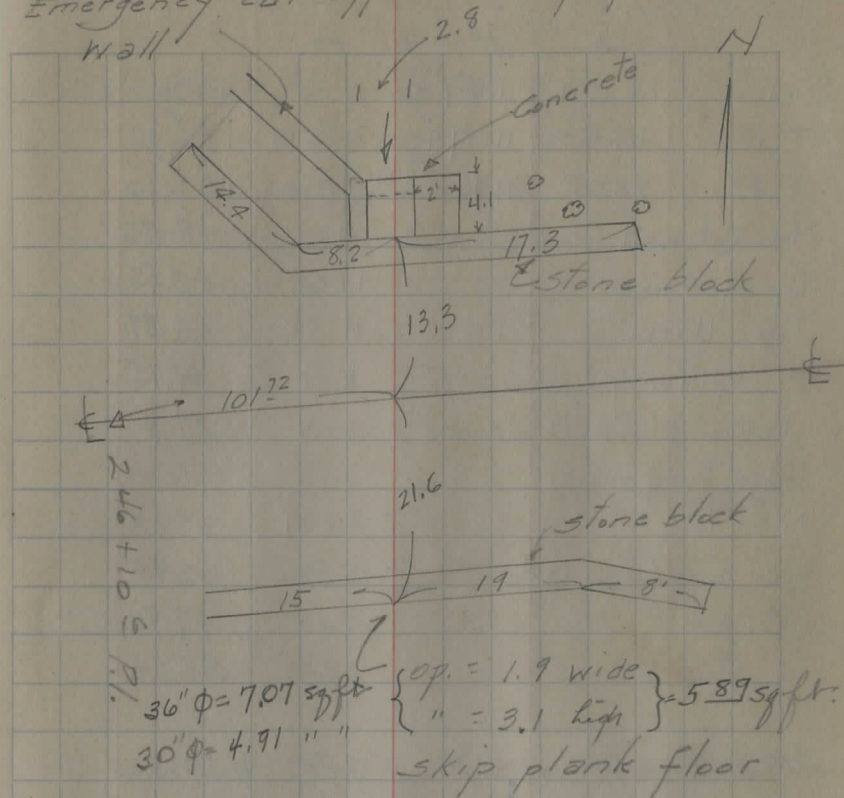 Emergency
wall
2.8
N
Concrete
2'
4.1
14.4
8.2
17.3
stone block
13.3
101.72
℄
℄
246+10 ≤ P.I.
21.6
stone block
15
19
8'
36" φ = 7.07 sq ft
op. = 1.9 wide
" = 3.1 high
= 5.89 sq ft.
30" φ = 4.91 " "
skip plank floor